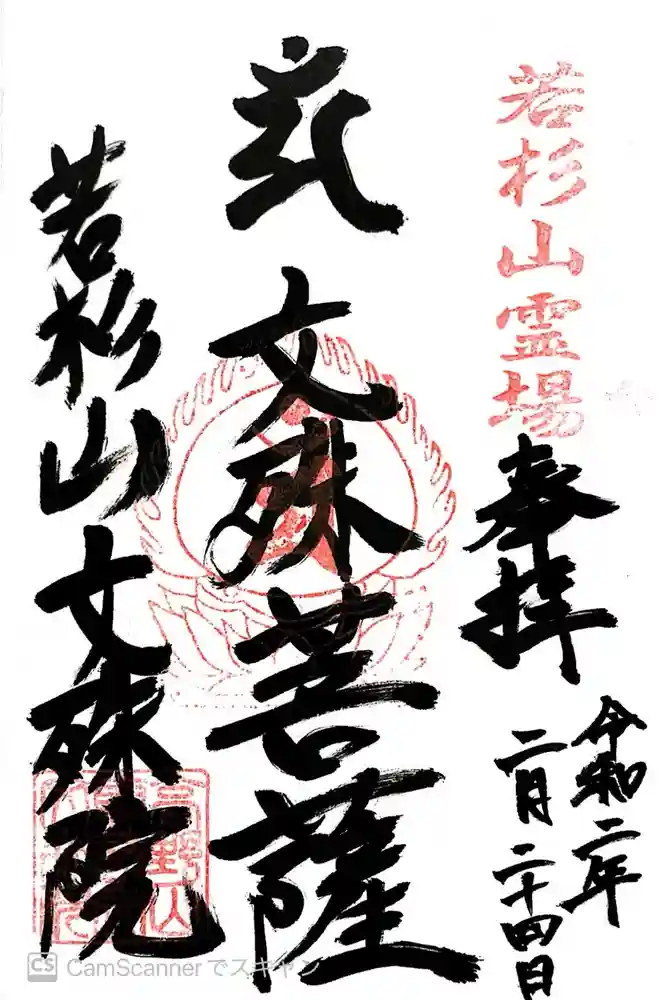 若杉山霊場
奉拝
令和二年
二月二十四日
文殊菩薩
若杉山文殊院
CS CamScanner でスキャン